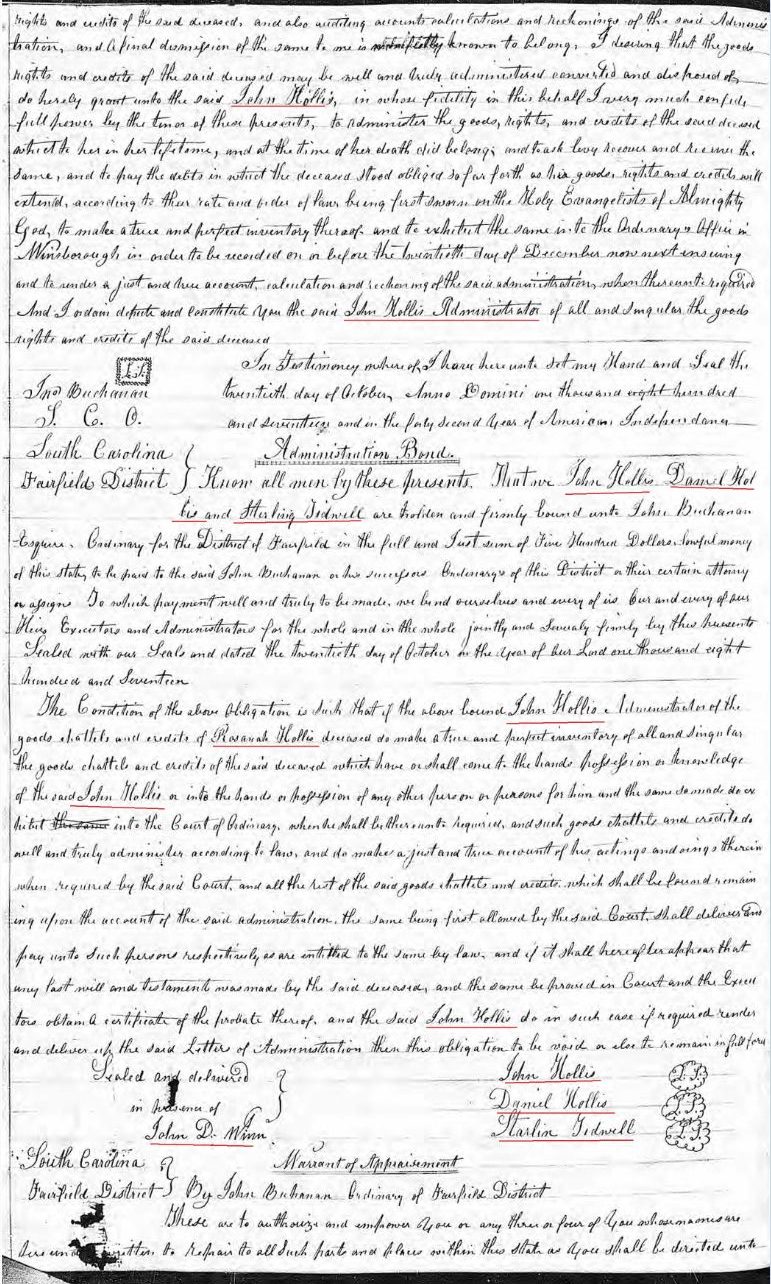 rights and credits of the said deceased, and also auditing accounts calculations and reckonings of the said Adminis
tration, and a final dismission of the same to me is known to belong, I desiring that the goods
rights and credits of the said deceased may be well and truly administered converted and disposed of,
do hereby grant unto the said John Hollis, in whose fidelity in this behalf I very much confide
full power by the tenor of these presents, to administer the goods, rights, and credits of the said deceased
which to her in her lifetime, and at the time of her death did belong; and to ask levy recover and receive the
same, and to pay the debts in which the deceased stood obliged so far forth as her goods, rights and credits will
extend, according to their rate and order of law being first sworn on the Holy Evangelists of Almighty
God, to make a true and perfect inventory thereof and to exhibit the same into the Ordinary's Office in
Winsborough in order to be recorded on or before the twentieth day of December now next ensuing
and to render a just and true account, calculation and reckoning of the said administration, when thereunto required
And I ordain depute and constitute you the said John Hollis Administrator of all and singular the goods
rights and credits of the said deceased
In Testimony whereof, I have hereunto set my Hand and Seal the
L.S.
Jno Buchanan twentieth day of October, Anno Domini one thousand eight hundred
S. C. O. and seventeen and in the forty second year of American Independance
South Carolina Administration Bond.
Fairfield District Know all men by these presents. That we John Hollis Daniel Hol
lis and Sterling Tidwell are holden and firmly bound unto John Buchanan
Esquire. Ordinary for the District of Fairfield in the full and Just sum of Five Hundred Dollars lawful money
of this state, to be paid to the said John Buchanan or his successors Ordinarys of this District or their certain attorny
or assigns To which payment well and truly to be made, we bind ourselves and every of us Our and every of our
Heirs Executors and Administrators for the whole and in the whole jointly and Severaly firmly by these presents
Sealed with our Seals and dated the twentieth day of October in the year of our Lord one thousand eight
hundred and Seventeen
The Condition of the above obligation is such that if the above bound John Hollis Administrator of the
goods chattels and credits of Rosanah Hollis deceased do make a true and perfect inventory of all and singular
the goods chattels and credits of the said deceased which have or shall come to the hands possession or knowledge
of the said John Hollis or into the hands or possession of any other person or persons for him and the same so made do ex
hibit the same into the Court of Ordinary. when he shall be thereunto required, and such goods chattels and credits do
well and truly administer according to law, and do make a just and true account of his actings and oings therein
when required by the said Court, and all the rest of the said goods chattels and credits. which shall be found remain
ing upon the account of the said administration, the same being first allowed by the said Court, shall deliver and
pay unto such persons respectively as are entitled to the same by law, and if it shall hereafter appear that
any last will and testament was made by the said deceased, and the same be proved in Court and the Execu
tors obtain a certificate of the probate thereof, and the said John Hollis do in such case if required render
and deliver up the said Letter of Administration then this obligation to be void or else to remain in full force
Sealed and delivered John Hollis L.S.
in presence of Daniel Hollis L.S.
John D. Winn Starlin Tidwell L.S.
South Carolina Warrant of Appraisement
Fairfield District By John Buchanan Ordinary of Fairfield District
These are to authorize and empower you or any three or four of you whose names are
here under written to repair to all such parts and places within this state as you shall be directed unto